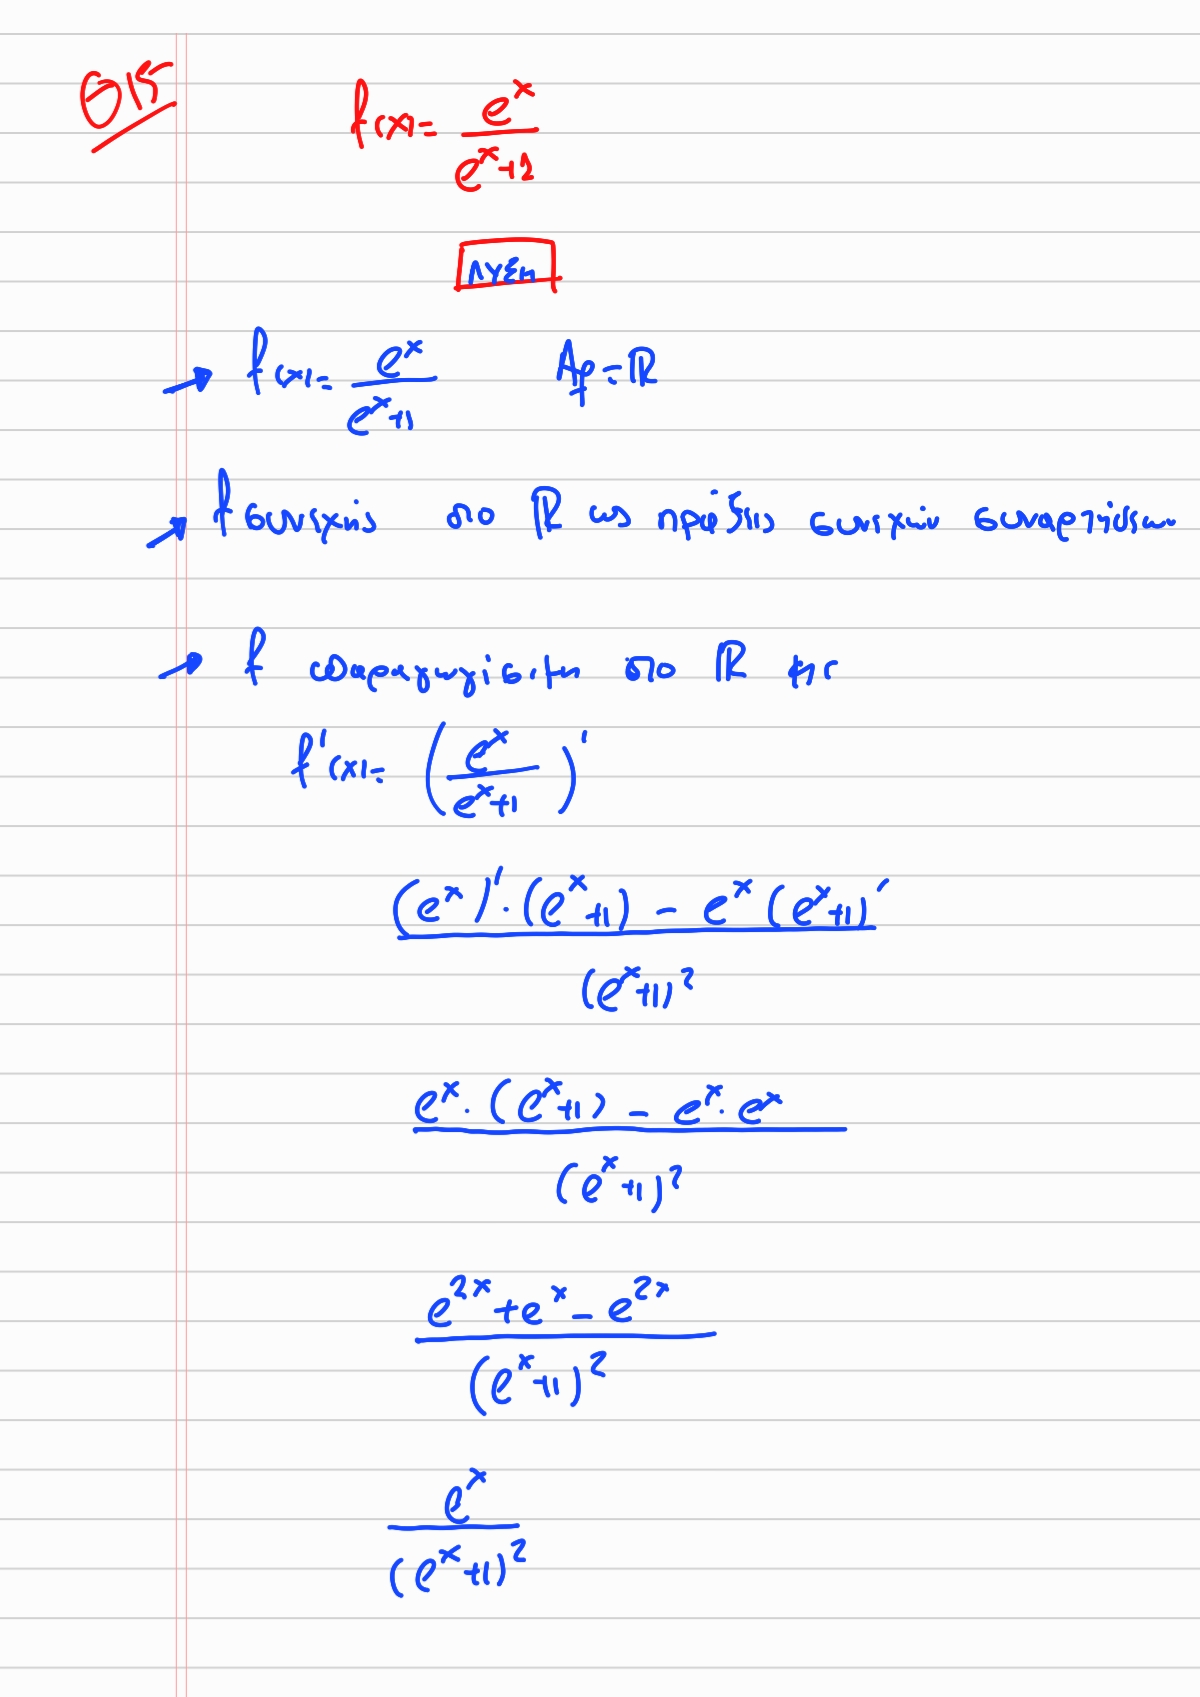 Θ15
f(x)= e^x/(e^x+1)
ΛΥΣΗ
→ f(x)= e^x/(e^x+1) A_f=ℝ
→ f συνεχής στο ℝ ως πράξεις συνεχών συναρτήσεων
→ f παραγωγίσιμη στο ℝ με
f'(x)= (e^x/(e^x+1))'
((e^x)'·(e^x+1) - e^x(e^x+1)'/(e^x+1)^2
(e^x·(e^x+1) - e^x·e^x)/(e^x+1)^2
(e^{2x}+e^x-e^{2x})/(e^x+1)^2
e^x/(e^x+1)^2